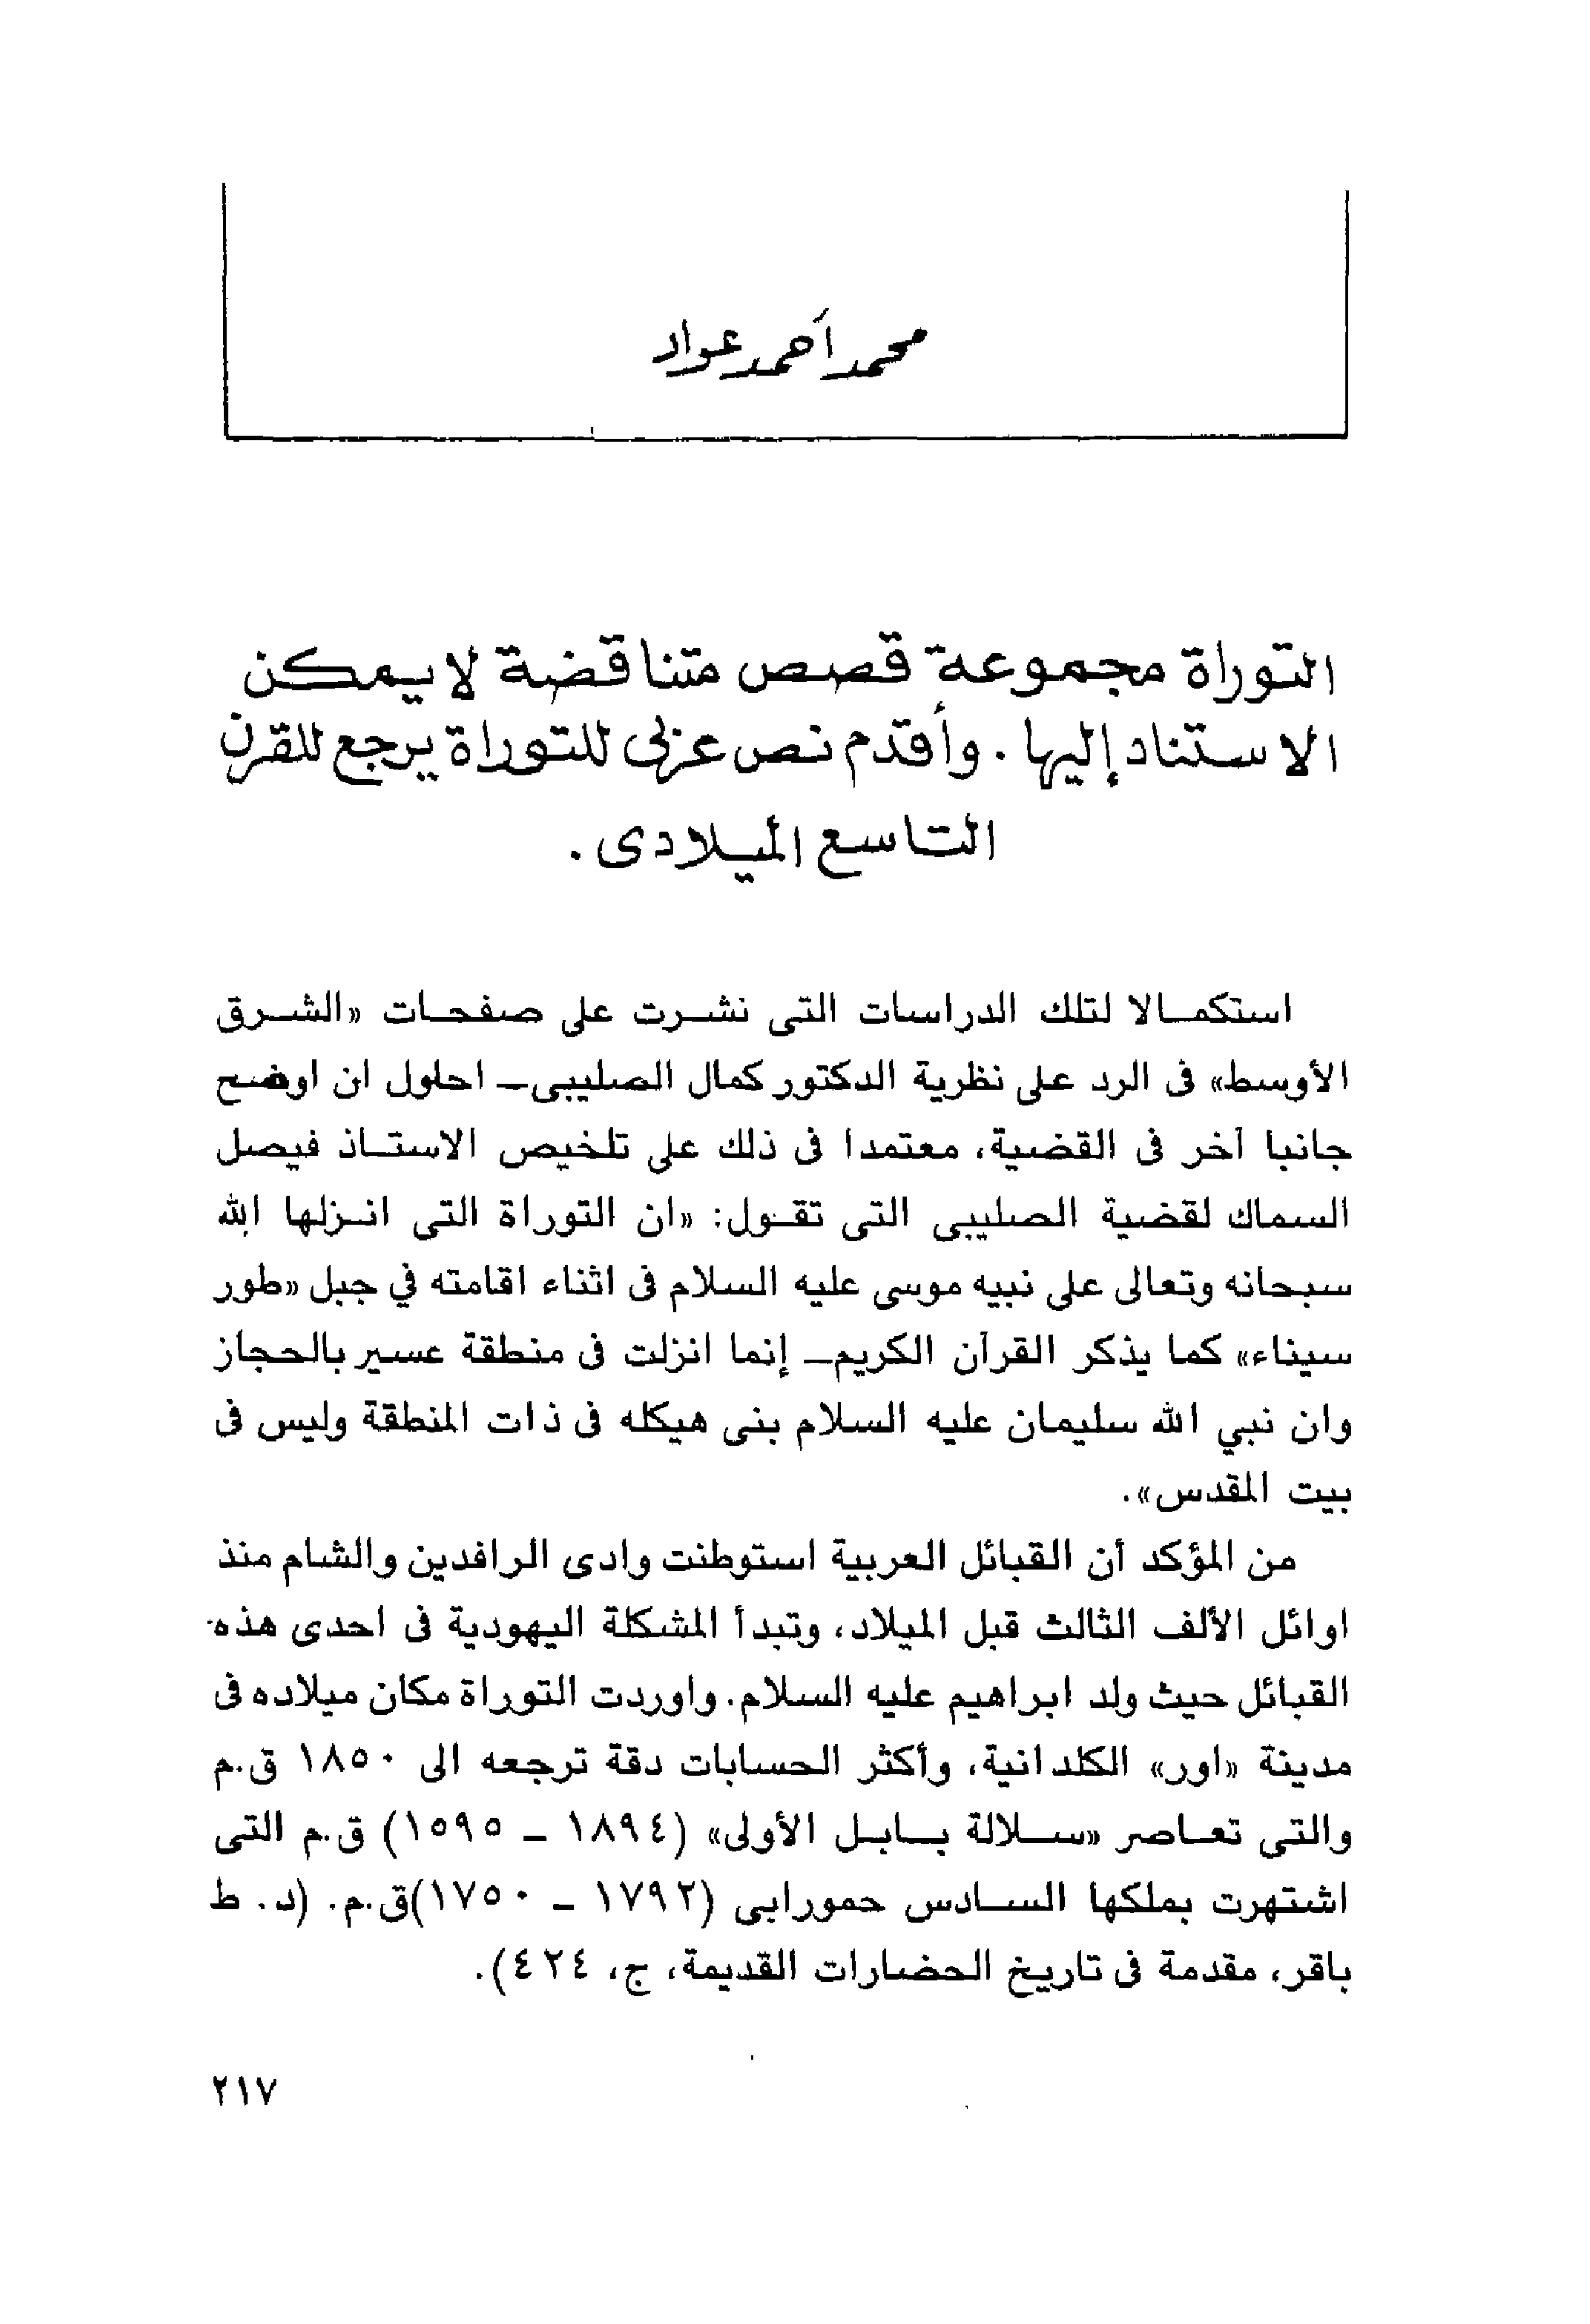 محمد أحمد عواد
التوراة مجموعة قصص متناقضة لا يمكن
الاستناد إليها . وأقدم نص عربى للتوراة يرجع للقرن
التاسع الميلادى .
استكمالا لتلك الدراسات التى نشرت على صفحات «الشرق
الأوسط» فى الرد على نظرية الدكتور كمال الصليبى ـ احاول ان اوضح
جانبا آخر فى القضية، معتمدا فى ذلك على تلخيص الاستاذ فيصل
السماك لقضية الصليبى التى تقول: «ان التوراة التى انزلها الله
سبحانه وتعالى على نبيه موسى عليه السلام فى اثناء اقامته في جبل «طور
سيناء» كما يذكر القرآن الكريم ـ إنما انزلت فى منطقة عسير بالحجاز
وان نبي الله سليمان عليه السلام بنى هيكله فى ذات المنطقة وليس فى
بيت المقدس».
من المؤكد أن القبائل العربية استوطنت وادى الرافدين والشام منذ
اوائل الألف الثالث قبل الميلاد، وتبدأ المشكلة اليهودية فى احدى هذه
القبائل حيث ولد ابراهيم عليه السلام. واوردت التوراة مكان ميلاده فى
مدينة «اور» الكلدانية، وأكثر الحسابات دقة ترجعه الى ١٨٥٠ ق.م
والتى تعاصر «سلالة بابل الأولى» (١٨٩٤ ـ ١٥٩٥) ق.م التى
اشتهرت بملكها السادس حمورابى (١٧٩٢ ـ ١٧٥٠)ق.م. (د. ط
باقر، مقدمة فى تاريخ الحضارات القديمة، ج، ٤٢٤).
٢١٧